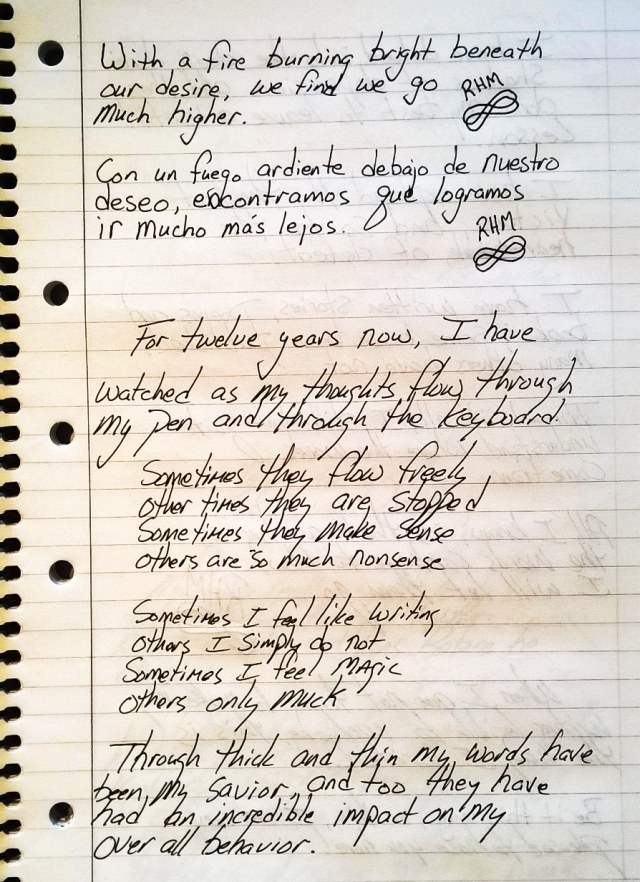 With a fire burning bright beneath
our desire, we find we go
much higher.
RHM
Con un fuego ardiente debajo de nuestro
deseo, encontramos que logramos
ir mucho más lejos.
RHM
For twelve years now, I have
watched as my thoughts flow through
my pen and through the keyboard.
Sometimes they flow freely
Other times they are stopped
Sometimes they make sense
Others are so much nonsense
Sometimes I feel like writing
Others I simply do not
Sometimes I feel Magic
Others only muck
Through thick and thin my words have
been my savior, and too they have
had an incredible impact on my
over all behavior.